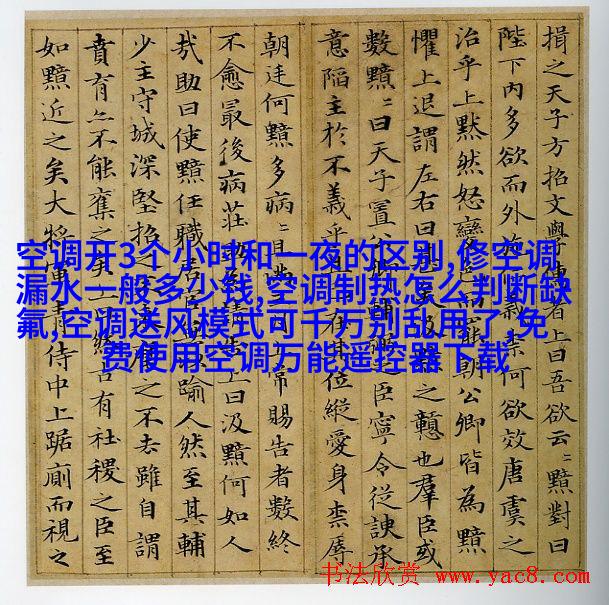 損之天子方招文學上曰吾欲云〻黯對曰
陛下內多欲而外施柰何欲效唐虞之
治乎上默然怒變色而罷朝公卿皆為黯
懼上退謂左右曰甚矣汲黯之戇也羣臣或
數黯〻曰天子置公卿輔弼之臣寧令從諛承
意陷主於不義乎且在其位縱愛身柰辱
朝廷何黯多病〻且滿賜告者數終
不愈最後病莊助為請告上曰汲黯何如人
哉助曰使黯任職居官踰人然至其輔
少主守城深堅招之之不去雖自謂
賁育亦不能奪之矣上曰然古有社稷之臣至
如黯近之矣大將軍青侍中上踞廁而視之
空调开3个小时和一夜的区别,修空调
漏水一般多少钱,空调制热怎么判断缺
氟,空调送风模式可千万别乱用了,免
费使用空调万能遥控器下载
书法欣赏 www.yac8.com